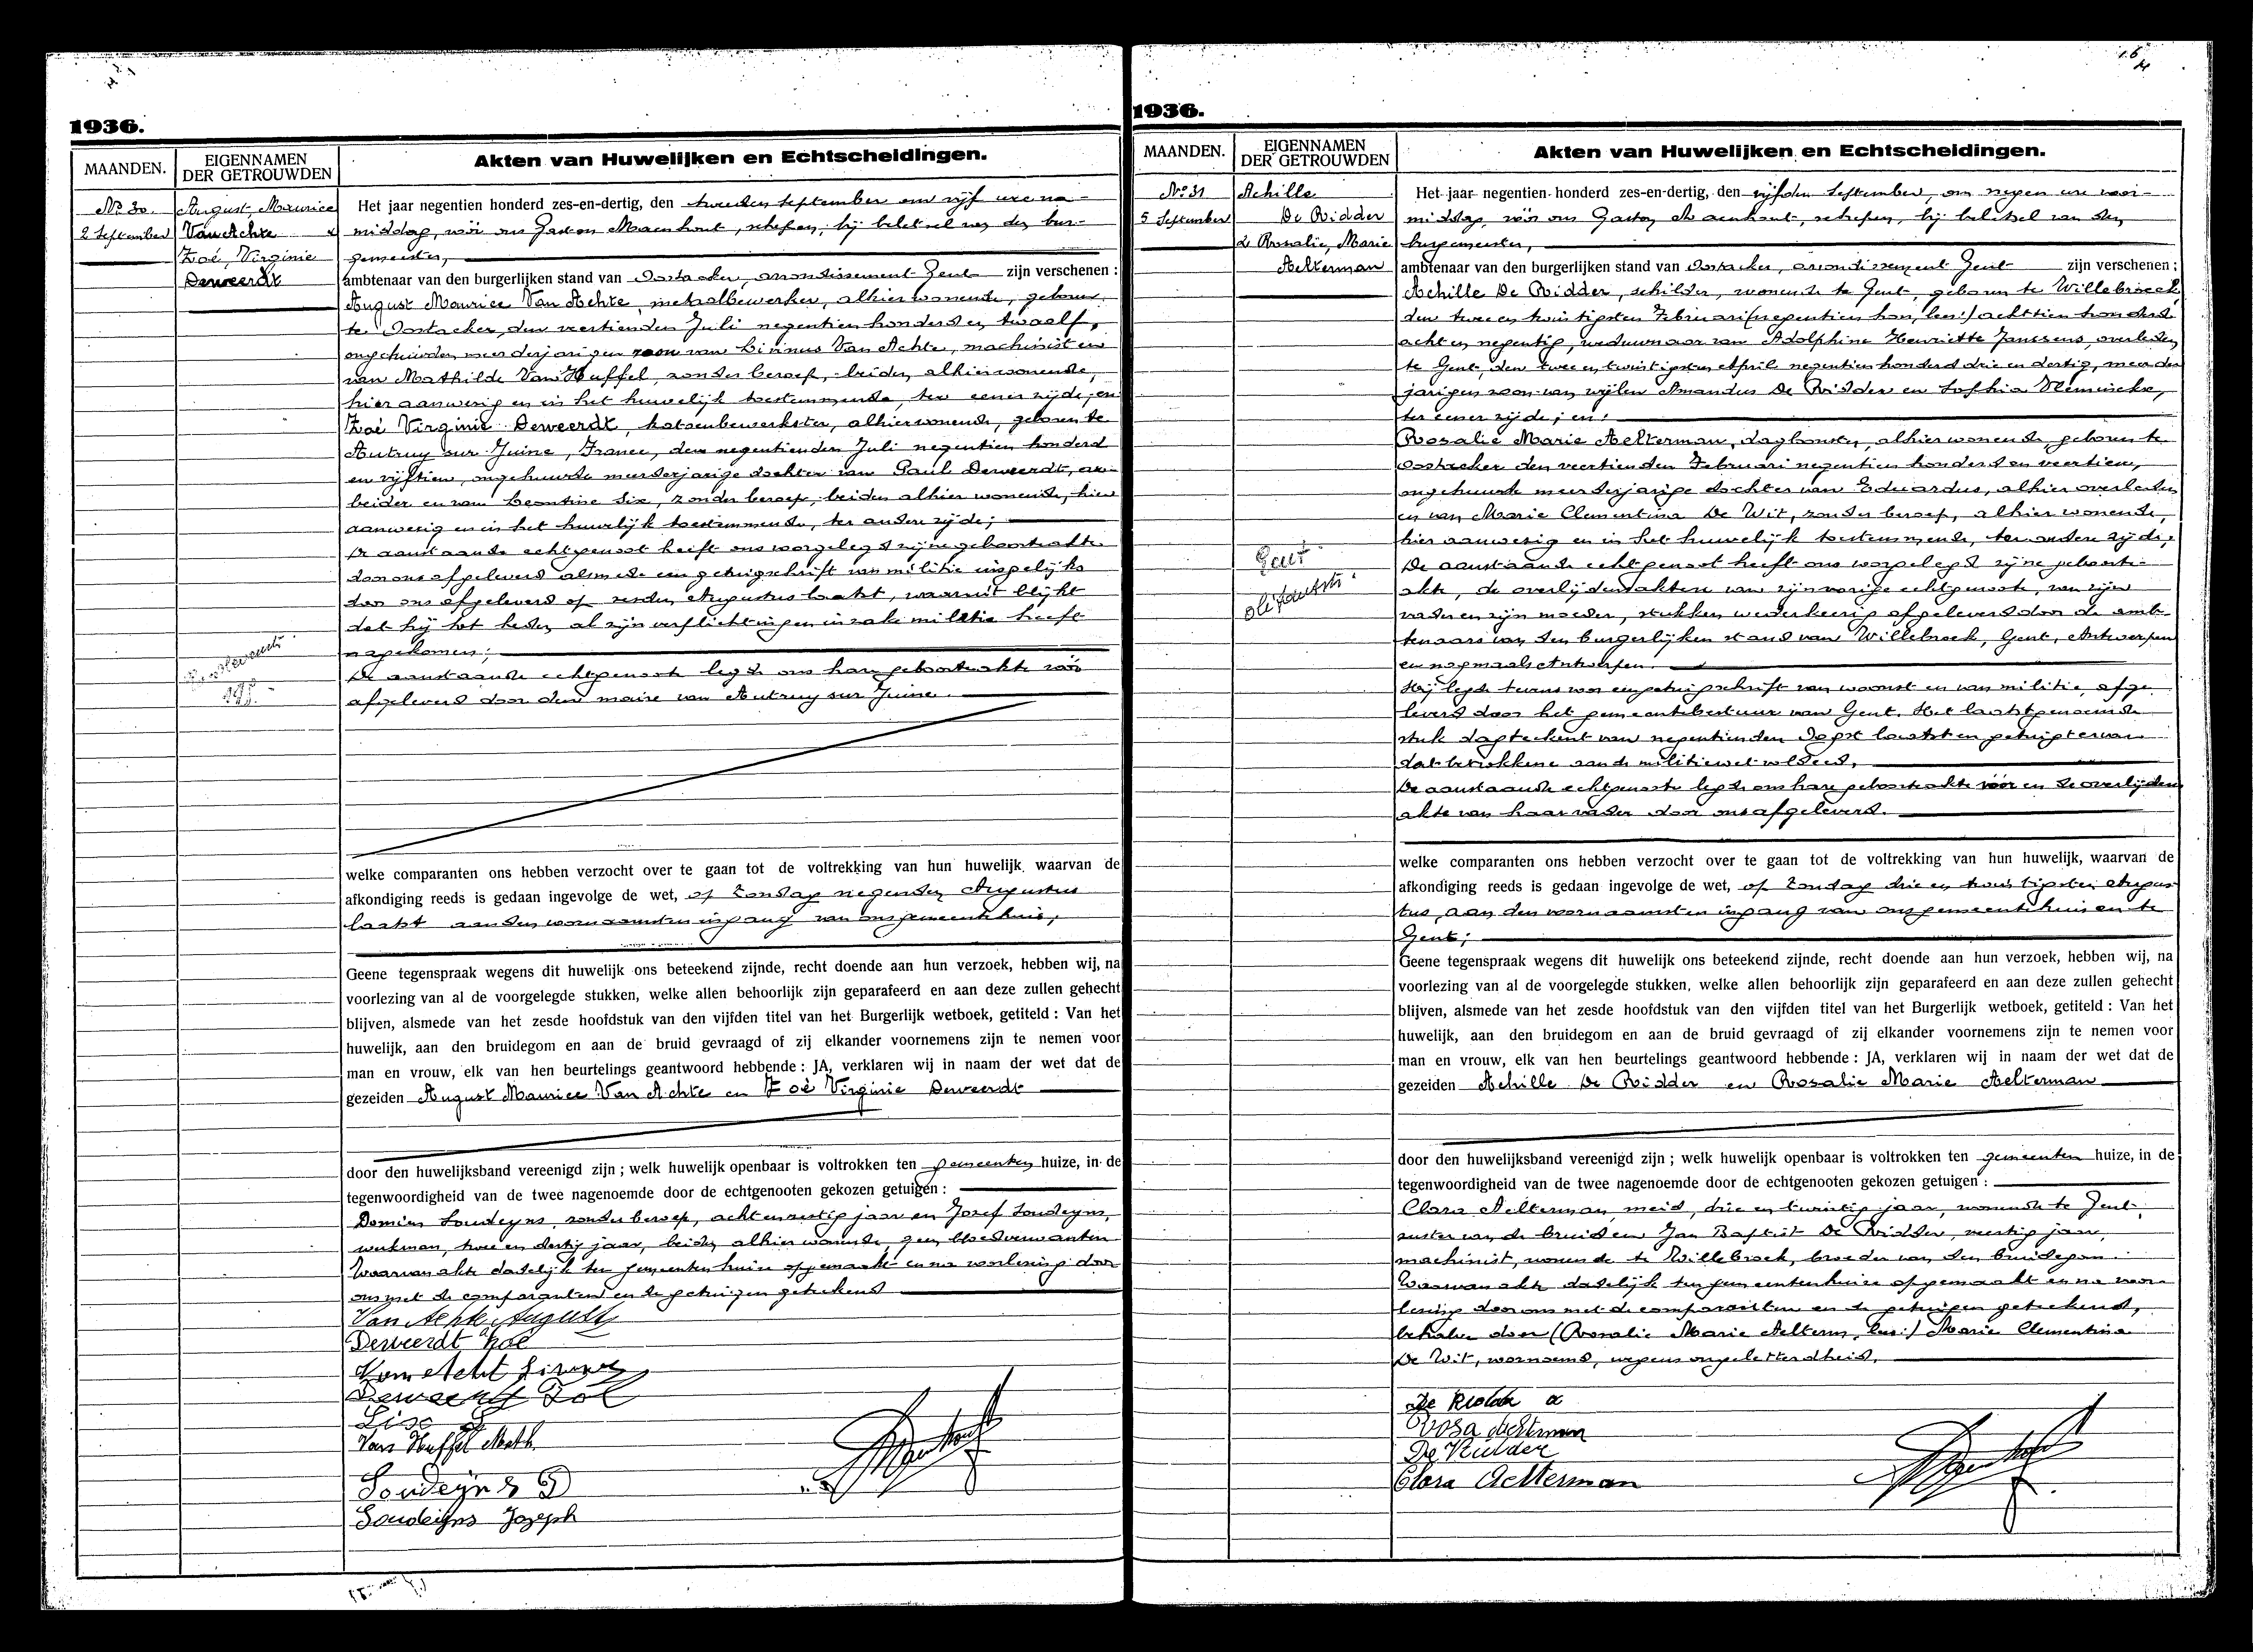 1936.
MAANDEN.
EIGENNAMEN
DER GETROUWDEN
Akten van Huwelijken en Echtscheidingen.
No 30.
2 September
August, Maurice
Van Achte &
Zoé, Virginie
Deweerdt
Het jaar negentien honderd zes-en-dertig, den tweeden September om vijf ure na-
middag, vóór ons Gaston Maenhout, schepen, bij beletsel van den bur-
gemeester,
ambtenaar van den burgerlijken stand van Oostacker, arrondissement Gent zijn verschenen :
August Maurice Van Achte, metaalbewerker, alhier wonende, geboren
te Oostacker, den veertienden Juli negentien honderd en twaalf,
ongehuwden meerderjarigen zoon van Livinus Van Achte, machinist en
van Mathilde Van Huffel, zonder beroep, beiden alhier wonende,
hier aanwezig en in het huwelijk toestemmende, ter eener zijde; en
Zoé Virginie Deweerdt, katoenbewerkster, alhier wonende, geboren te
Autruy sur Juine, France, den negentienden Juli negentien honderd
en vijftien, ongehuwde meerderjarige dochter van Paul Deweerdt, ar-
beider en van Leontine Six, zonder beroep, beiden alhier wonende, hier
aanwezig en in het huwelijk toestemmende, ter andere zijde;
De aanstaande echtgenoot heeft ons voorgelegd zijne geboorteakte
door ons afgeleverd alsmede een getuigschrift van militie insgelijks
door ons afgeleverd op zesden Augustus laatst, waaruit blijkt
dat hij tot heden al zijn verplichtingen inzake militie heeft
nagekomen;
De aanstaande echtgenoote legde ons hare geboorteakte vóór
afgeleverd door den maire van Autruy sur Juine.
welke comparanten ons hebben verzocht over te gaan tot de voltrekking van hun huwelijk, waarvan de
afkondiging reeds is gedaan ingevolge de wet, op Zondag negenden Augustus
laatst aan den voornaamsten ingang van ons gemeentehuis;
Geene tegenspraak wegens dit huwelijk ons beteekend zijnde, recht doende aan hun verzoek, hebben wij, na
voorlezing van al de voorgelegde stukken, welke allen behoorlijk zijn geparafeerd en aan deze zullen gehecht
blijven, alsmede van het zesde hoofdstuk van den vijfden titel van het Burgerlijk wetboek, getiteld : Van het
huwelijk, aan den bruidegom en aan de bruid gevraagd of zij elkander voornemens zijn te nemen voor
man en vrouw, elk van hen beurtelings geantwoord hebbende : JA, verklaren wij in naam der wet dat de
gezeiden August Maurice Van Achte en Zoé Virginie Deweerdt
door den huwelijksband vereenigd zijn ; welk huwelijk openbaar is voltrokken ten gemeenten huize, in de
tegenwoordigheid van de twee nagenoemde door de echtgenooten gekozen getuigen :
Domien Soudeyns, zonder beroep, achtenzestig jaar en Jozef Soudeyns,
werkman, twee en dertig jaar, beiden alhier wonende, geen bloedverwanten
Waarvan akte dadelijk ten gemeentenhuize opgemaakt en na voorlezing door
ons met de comparanten en de getuigen geteekend
Van Achte August
Deweerdt Zoé
Van Acht
Six
Van Huffel Math.
Soudeijns D
Soudeijns Jozeph
1936.
MAANDEN.
EIGENNAMEN
DER GETROUWDEN
Akten van Huwelijken en Echtscheidingen.
No 31
5 September
Achille
De Ridder
& Rosalie, Marie
Aelterman
Gent
Het jaar negentien honderd zes-en-dertig, den vijfden September, om negen ure voor-
middag, vóór ons Gaston Maenhout, schepen, bij beletsel van den
burgemeester,
ambtenaar van den burgerlijken stand van Oostacker, arrondissement Gent zijn verschenen :
Achille De Ridder, schilder, wonende te Gent, geboren te Willebroeck,
den twee en twintigsten Februari (negentien hon, lees:) achttien honderd
acht en negentig, weduwnaar van Adolphine Henriette Janssens, overleden
te Gent, den twee en twintigsten April negentien honderd drie en dertig, meerder-
jarigen zoon van wijlen Amandus De Ridder en Sophia Vleminckx,
ter eener zijde; en:
Rosalie Marie Aelterman, dagloonster, alhier wonende, geboren te
Oostacker den veertienden Februari negentien honderd en veertien,
ongehuwde meerderjarige dochter van Eduardus, alhier overleden
en van Marie Clementina De Wit, zonder beroep, alhier wonende,
hier aanwezig en in het huwelijk toestemmende, ter andere zijde;
De aanstaande echtgenoot heeft ons voorgelegd zijne geboorte-
akte, de overlijdensakten van zijn vorige echtgenoote, van zijn
vader en zijn moeder, stukken wederkeerig afgeleverd door de amb-
tenaars van den burgerlijken stand van Willebroek, Gent, Antwerpen
en nogmaals Antwerpen.
Hij legde tevens voor een getuigschrift van woonst en van militie, afge-
leverd door het gemeentebestuur van Gent. Het laatstgenoemde
stuk dagteekent van negentienden Oogst laatst en getuigt ervan
dat betrokkene aan de militiewet voldeed.
De aanstaande echtgenoote legde ons hare geboorteakte vóór en de overlijdens
akte van haar vader door ons afgeleverd.
welke comparanten ons hebben verzocht over te gaan tot de voltrekking van hun huwelijk, waarvan de
afkondiging reeds is gedaan ingevolge de wet, op Zondag drie en twintigsten Augus
tus, aan den voornaamsten ingang van ons gemeentehuis en te
Gent;
Geene tegenspraak wegens dit huwelijk ons beteekend zijnde, recht doende aan hun verzoek, hebben wij, na
voorlezing van al de voorgelegde stukken, welke allen behoorlijk zijn geparafeerd en aan deze zullen gehecht
blijven, alsmede van het zesde hoofdstuk van den vijfden titel van het Burgerlijk wetboek, getiteld : Van het
huwelijk, aan den bruidegom en aan de bruid gevraagd of zij elkander voornemens zijn te nemen voor
man en vrouw, elk van hen beurtelings geantwoord hebbende : JA, verklaren wij in naam der wet dat de
gezeiden Achille De Ridder en Rosalie Marie Aelterman
door den huwelijksband vereenigd zijn ; welk huwelijk openbaar is voltrokken ten gemeenten huize, in de
tegenwoordigheid van de twee nagenoemde door de echtgenooten gekozen getuigen :
Clara Aelterman, meid, drie en twintig jaar, wonende te Gent,
zuster van de bruid en Jan Baptist De Ridder, veertig jaar,
machinist, wonende te Willebroek, broeder van den bruidegom.
Waarvan akte dadelijk ten gemeentenhuize opgemaakt en na voor-
lezing door ons met de comparanten en de getuigen geteekend,
behalve door (Rosalie Marie Aelterm, lees:) Marie Clementina
De Wit, voornoemd, wegens ongeletterdheid.
De Ridder a
Rosa Aelterman
De Ridder
Clara Aelterman